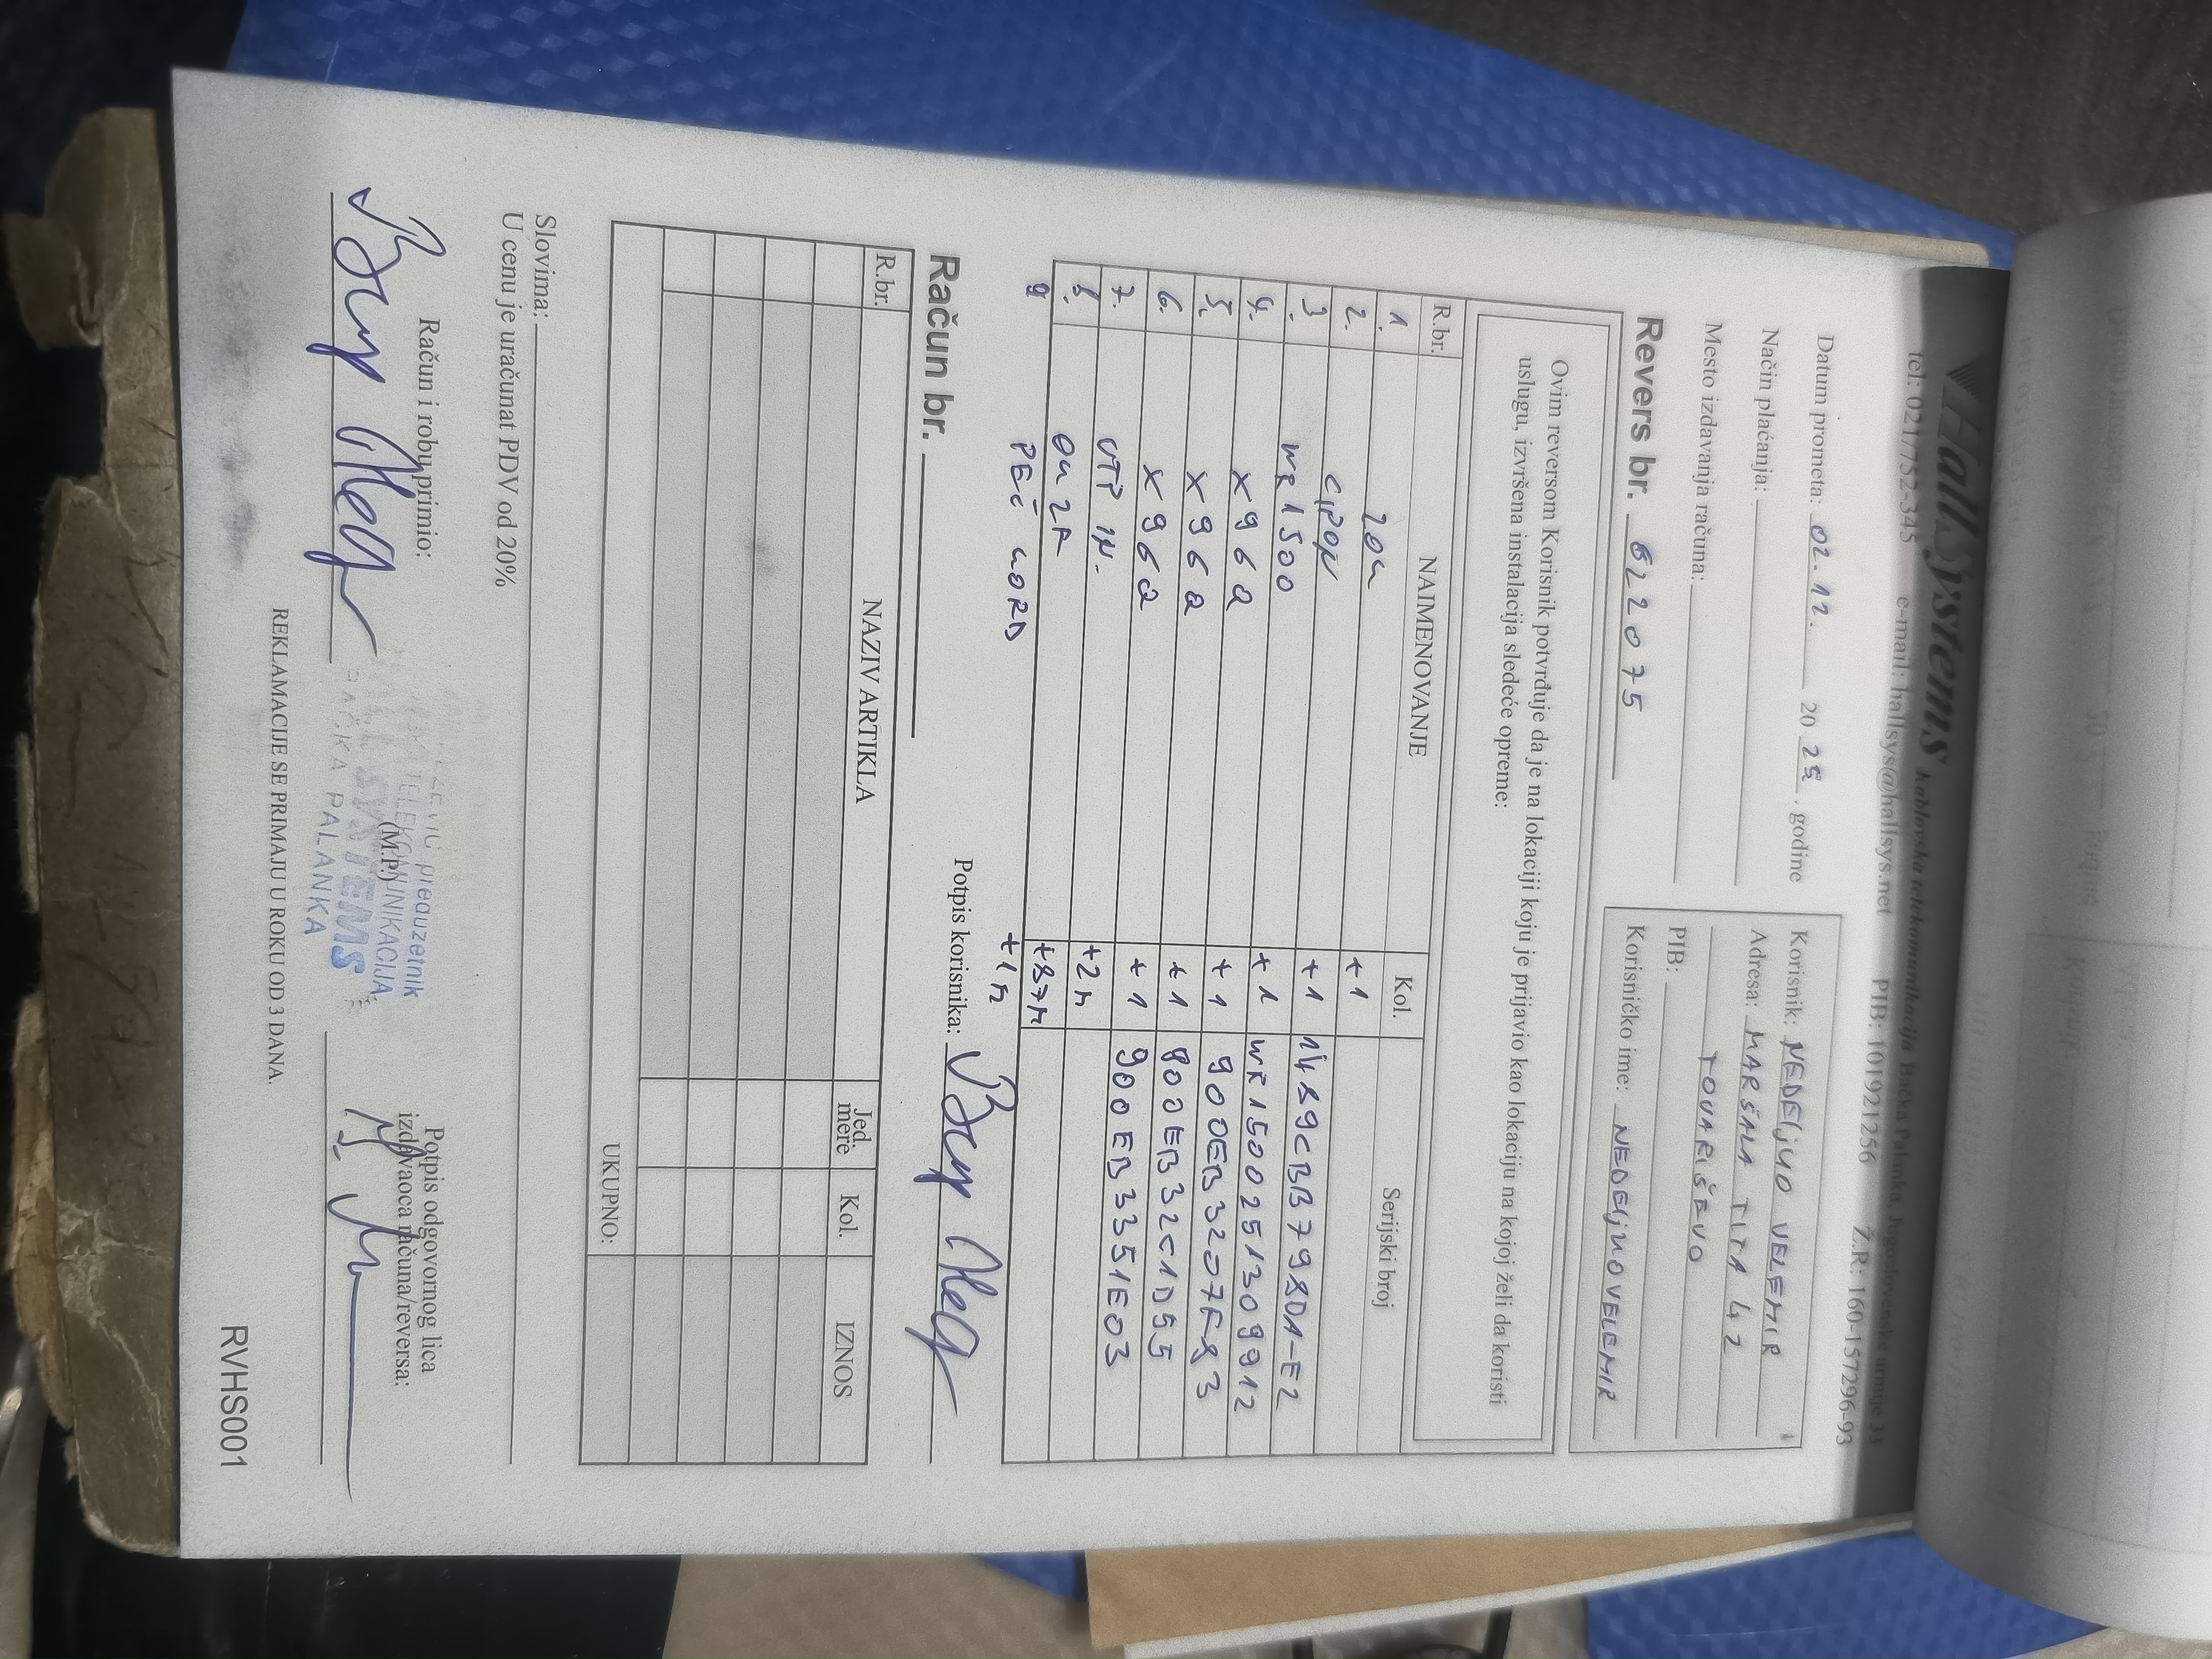 HallSystems Kablovska telekomunikacija Bačka Palanka, Jugoslovenske armije 33
tel: 021/752-345 e-mail: hallsys@hallsys.net PIB: 101921256 Ž.R: 160-157296-93
Datum prometa: 02.12. 20 25. godine
Način plaćanja:
Mesto izdavanja računa:
Korisnik: NEDELJKO VELEMIR
Adresa: MARŠALA TITA 42
TOVARIŠEVO
PIB:
Korisničko ime: NEDELJKOVELEMIR
Revers br. 622075
Ovim reversom Korisnik potvrđuje da je na lokaciji koju je prijavio kao lokaciju na kojoj želi da koristi
uslugu, izvršena instalacija sledeće opreme:
R.br. NAIMENOVANJE Kol. Serijski broj
1. ZOK +1
2. GPON +1 1489CBB7980A-E2
3. WR1500 +1 WR1500251309912
4. X96Q +1 900EB3207F83
5. X96Q +1 900EB32C1D55
6. X96Q +1 900EB3351E03
7. UTP IN. +2M
8. OK 2A +87M
9 PEČ KORD +1M
Račun br.
Potpis korisnika:
R.br. NAZIV ARTIKLA Jed. mere Kol. IZNOS
UKUPNO:
Slovima:
U cenu je uračunat PDV od 20%
Račun i robu primio:
(M.P.)
preduzetnik
TELEKOMUNIKACIJA
SYSTEMS
BAČKA PALANKA
Potpis odgovornog lica
izdavaoca računa/reversa:
REKLAMACIJE SE PRIMAJU U ROKU OD 3 DANA.
RVHS001